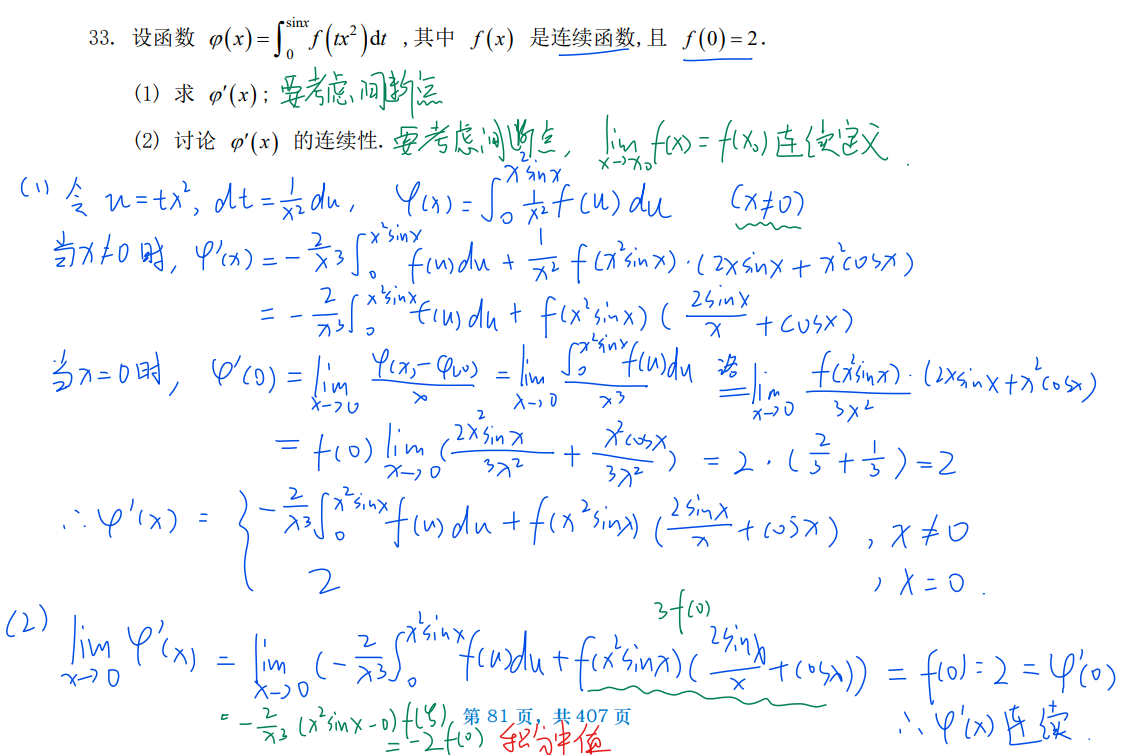 33. 设函数 φ(x)=∫₀^{sinx} f(tx²)dt ,其中 f(x) 是连续函数,且 f(0)=2.
(1) 求 φ′(x); 要考虑间断点
(2) 讨论 φ′(x) 的连续性. 要考虑间断点, lim_{x→x₀} f(x)=f(x₀) 连续定义.
(1) 令 u=tx², dt=1/x² du, φ(x)=∫₀^{x²sinx} 1/x² f(u)du (x≠0)
当x≠0时, φ'(x)=-2/x³∫₀^{x²sinx} f(u)du + 1/x² f(x²sinx)·(2xsinx+x²cosx)
=-2/x³∫₀^{x²sinx} f(u)du + f(x²sinx)(2sinx/x+cosx)
当x=0时, φ'(0)=lim_{x→0} (φ(x)-φ(0))/x = lim_{x→0} ∫₀^{x²sinx} f(u)du / x³ 洛= lim_{x→0} f(x²sinx)·(2xsinx+x²cosx) / 3x²
= f(0) lim_{x→0} (2xsinx/3x² + x²cosx/3x²) = 2·(2/3+1/3)=2
∴φ'(x) = { -2/x³∫₀^{x²sinx} f(u)du + f(x²sinx)(2sinx/x+cosx) , x≠0
2 , x=0.
3f(0)
(2) lim_{x→0} φ'(x) = lim_{x→0} (-2/x³∫₀^{x²sinx} f(u)du + f(x²sinx)(2sinx/x+cosx)) = f(0)=2=φ'(0)
= -2/x³ (x²sinx-0) f(ξ) 第 81 页, 共 407 页 ∴φ'(x)连续.
=-2f(0) 积分中值